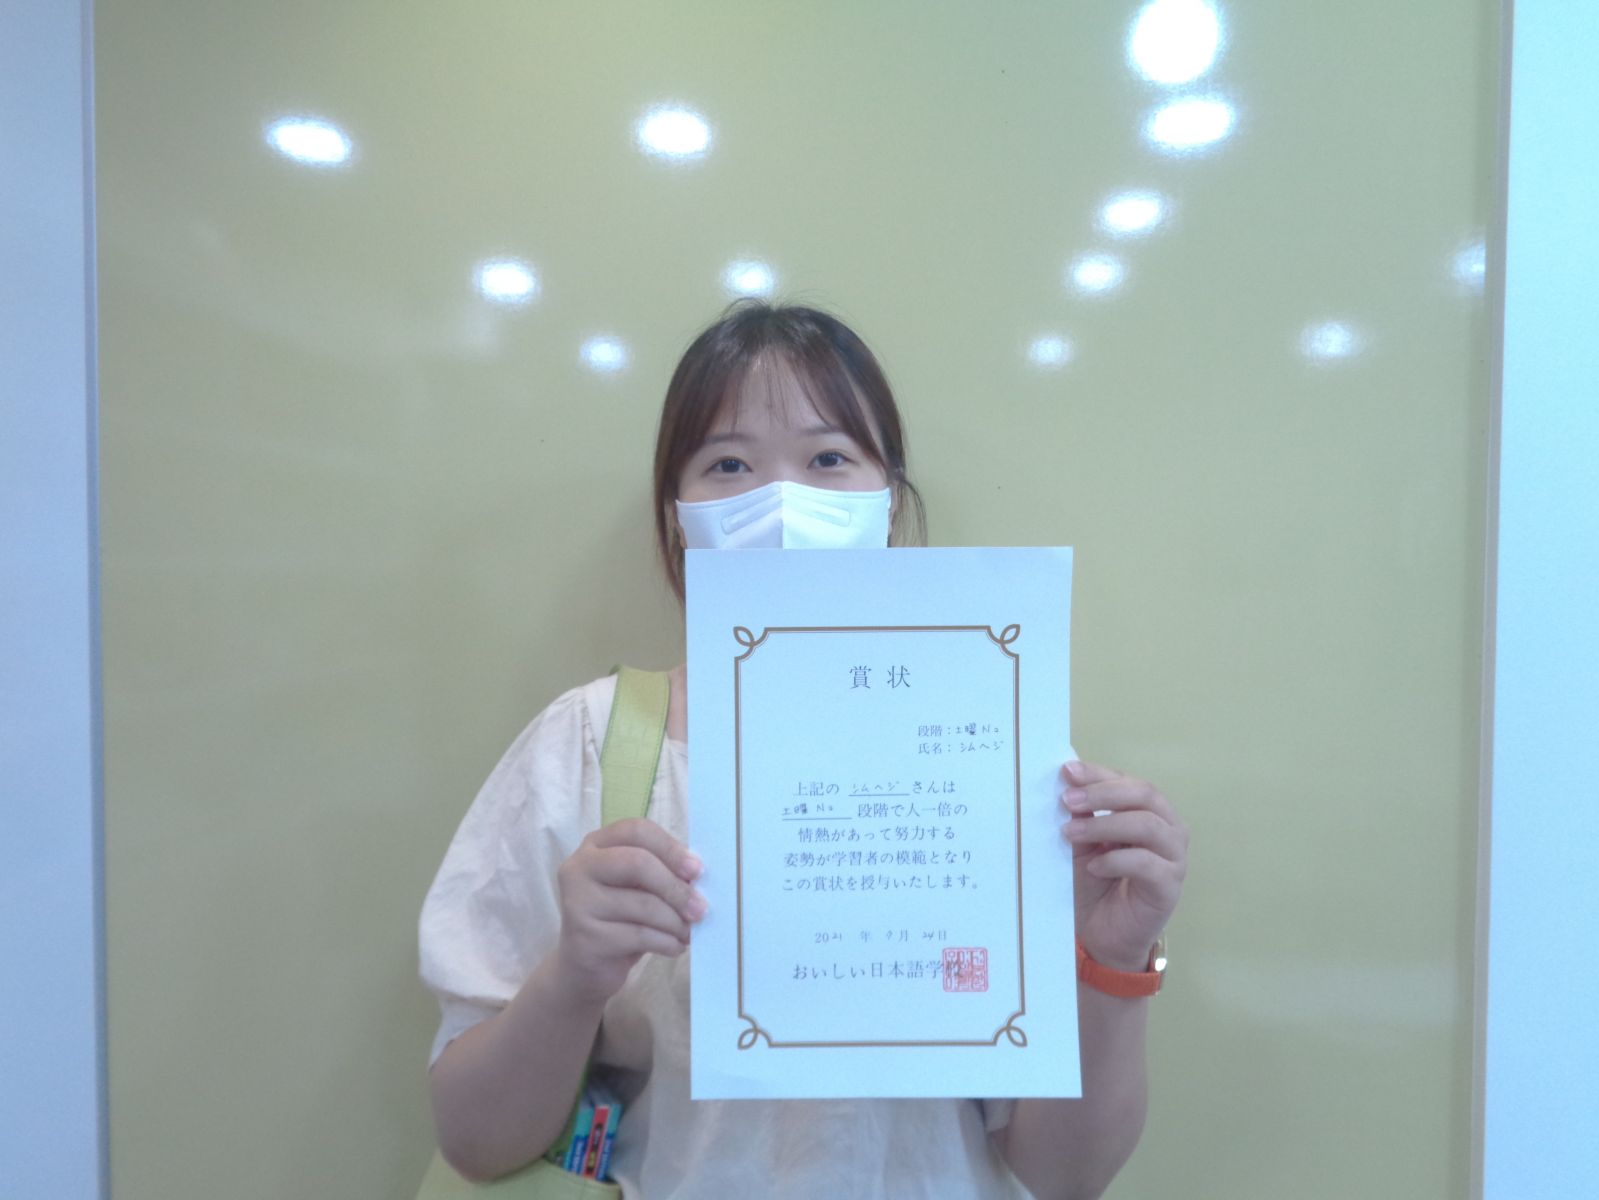 賞状
段階：土曜N2
氏名：シムヘジ
上記の シムヘジ さんは
土曜 N2 段階で人一倍の
情熱があって努力する
姿勢が学習者の模範となり
この賞状を授与いたします。
2021 年 9月 24日
おいしい日本語学校